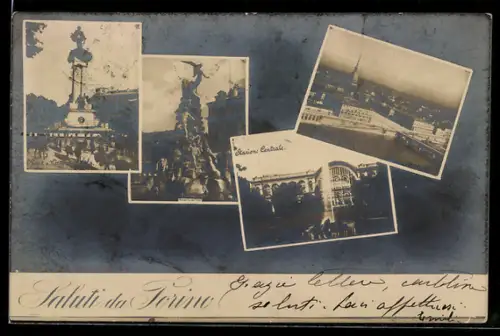 Stazione Centrale
Saluti da Torino
Grazie lettere, cartoline
saluti. Baci affettuosi